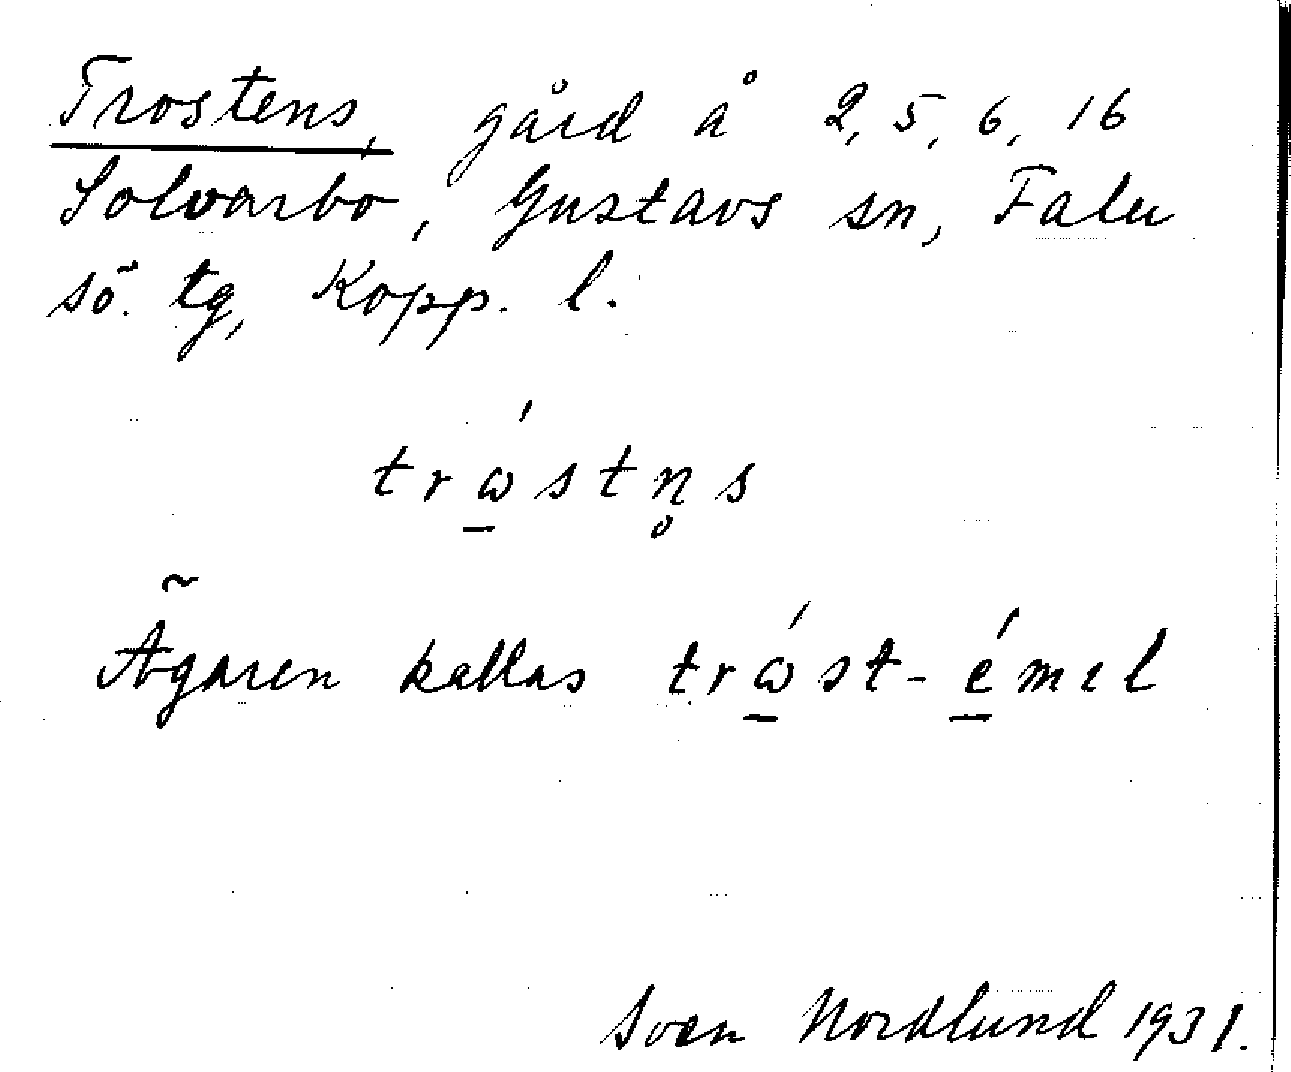 Trostens, gård å 2, 5, 6, 16
Solvarbo, Gustavs sn, Falu
sö. tg, Kopp. l.
trώ̲stn̥s
Ägaren kallas trώ̲st-é̲mıl
Sven Nordlund 1931.